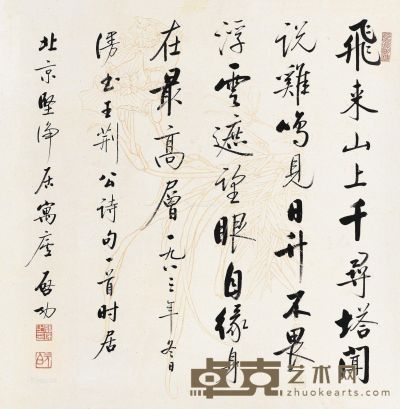 飛来山上千尋塔聞
説雞鳴見日升不畏
浮雲遮望眼自緣身
在最高層 一九八三年冬日
漫书王荆公詩句一首時居
北京堅净居寓廬 啓功
卓克艺术网
zhuokearts.com